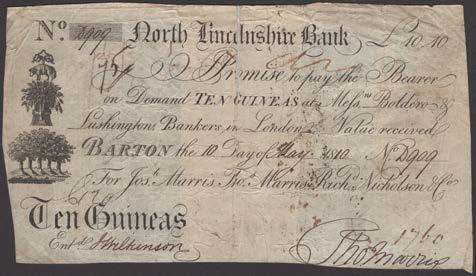 No. B909 North Lincolnshire Bank £10.10
I Promise to pay the Bearer
on Demand TEN GUINEAS at Messrs. Boldero &
Lushingtons Bankers in London Value received
BARTON the 10 Day of May 1810 No. B909
For Josh. Marris Thos. Marris Richd. Nicholson & Co.
Ten Guineas
1760
Entd. Wilkinson Thos Marris